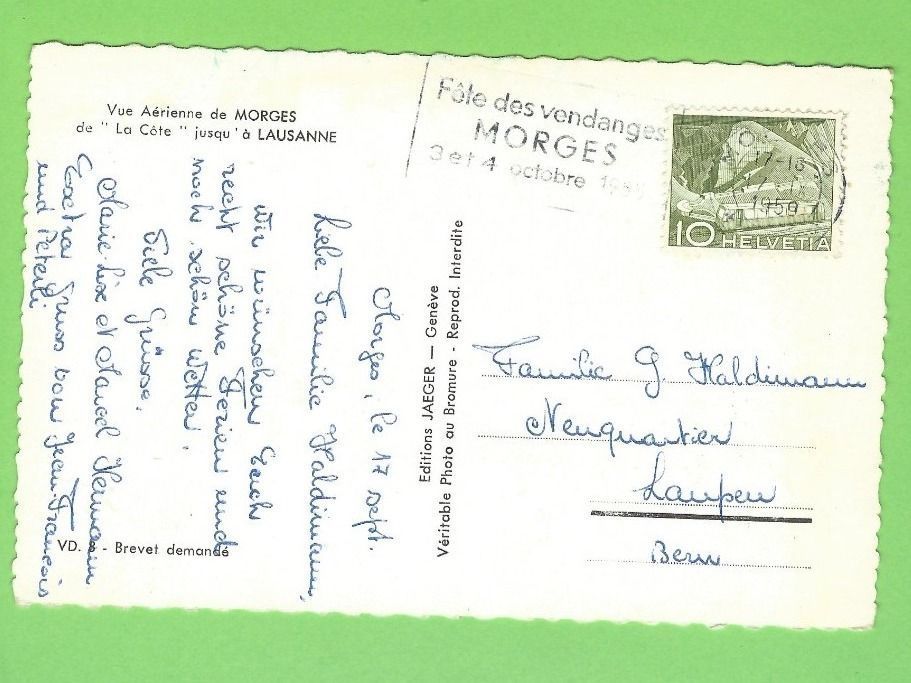 Vue Aérienne de MORGES
de " La Côte " jusqu'à LAUSANNE
Morges, le 17 sept.
Liebe Familie Haldimann,
Wir wünschen Euch
recht schöne Ferien und
noch schön Wetter.
Viele Grüsse.
Marie-Lise et Marcel Hermann
Extra Gruss von Jean-François
und Peterli
VD. - Brevet demandé
Editions JAEGER — Genève
Véritable Photo au Bromure - Reprod. Interdite
Fête des vendanges
MORGES
3 et 4 octobre
17-18
1950
10 HELVETIA
Familie G. Haldimann
Neuquartier
Laupen
Bern